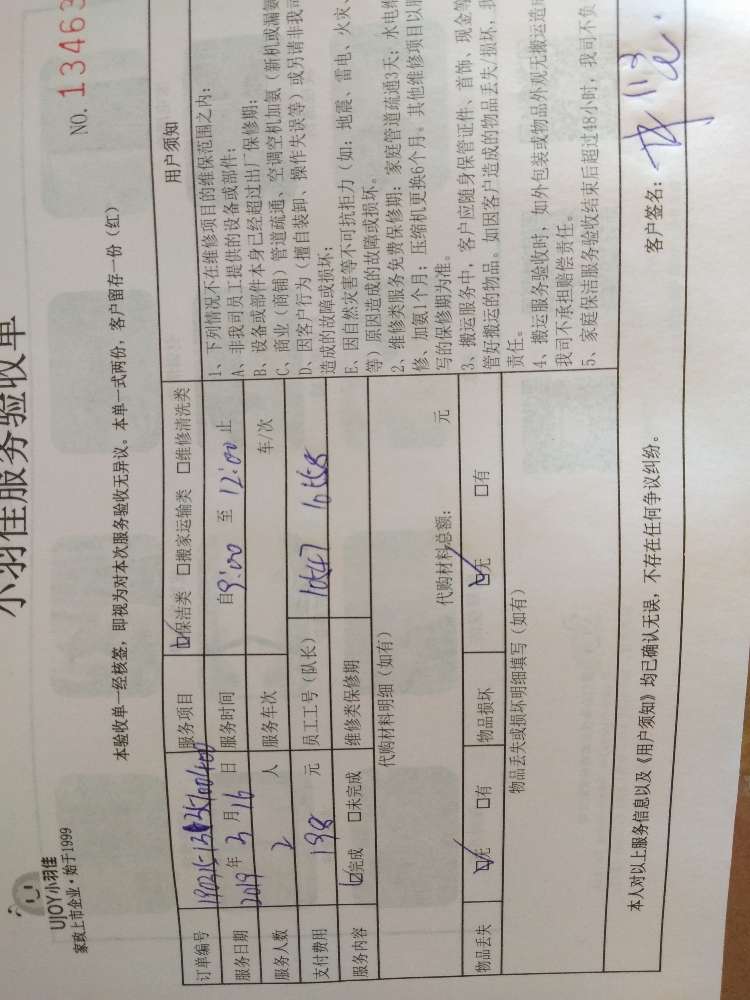 UJOY小羽佳
家政上市企业·始于1999
小羽佳服务验收单
NO. 13463
本验收单一经核签，即视为对本次服务验收无异议。本单一式两份，客户留存一份（红）
订单编号
服务项目 ☑保洁类 □搬家运输类 □维修清洗类
服务日期 2019年3月16日 服务时间 自9:00 至 12:00止
服务人数 2 人 服务车次 车/次
支付费用 198 元 员工工号（队长） 10547 10558
服务内容 ☑完成 □未完成 维修类保修期
代购材料明细（如有）
代购材料总额： 元
物品丢失 ☑无 □有 物品损坏 ☑无 □有
物品丢失或损坏明细填写（如有）
用户须知
1、下列情况不在维修项目的维保范围之内：
A、非我司员工提供的设备或部件；
B、设备或部件本身已经超过出厂保修期；
C、商业（商铺）管道疏通、空调空机加氨（新机或漏氨
D、因客户行为（擅自装卸、操作失误等）或另请非我司
造成的故障或损坏；
E、因自然灾害等不可抗拒力（如：地震、雷电、火灾、
等）原因造成的故障或损坏。
2、维修类服务免费保修期：家庭管道疏通3天；水电维
修、加氨1个月；压缩机更换6个月。其他维修项目以
写的保修期为准。
3、搬运服务中，客户应随身保管证件、首饰、现金等
管好搬运的物品。如因客户造成的物品丢失/损坏，我
责任。
4、搬运服务验收时，如外包装或物品外观无搬运造成
我司不承担赔偿责任。
5、家庭保洁服务验收结束后超过48小时，我司不负
本人对以上服务信息以及《用户须知》均已确认无误，不存在任何争议纠纷。
客户签名：